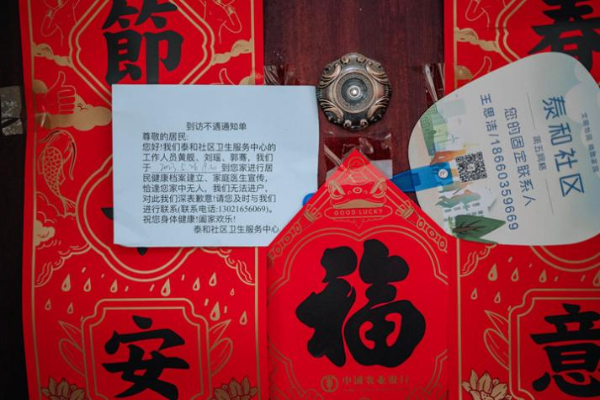 節
安
到访不遇通知单
尊敬的居民:
您好!我们泰和社区卫生服务中心的
工作人员黄靓、刘瑶、郭赛，我们
于 到您家进行居
民健康档案建立、家庭医生宣传，
恰逢您家中无人，我们无法进户，
对此我们深表歉意!请您及时与我们
进行联系(联系电话:13021656069)。
祝您身体健康!阖家欢乐!
泰和社区卫生服务中心
GOOD LUCKY
福
中国农业银行
泰和社区
第五网格
您的固定联系人
王思洁/18660359669
春
意